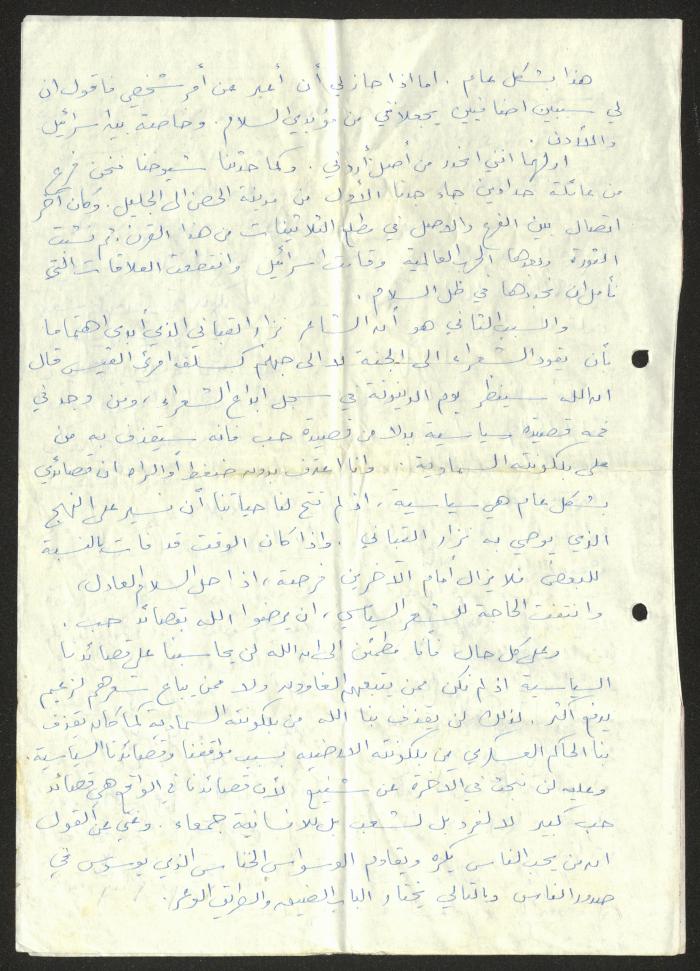 هذا بشكل عام. اما اذا جاز لي أن أعبر عن أمر شخصي فاقول ان
لي سببين اضافيين يجعلانني من مؤيدي السلام. وخاصة بين اسرائيل
والأردن.
اولهما انني انحدر من أصل أردني. وكما حدثنا شيوخنا فنحن فرع
من عائلة حدادين جاء جدنا الأول من مدينة الحصن الى الجليل. وكان آخر
اتصال بين الفرع والاصل في مطلع الثلاثينات من هذا القرن. ثم نشبت
الثورة وبعدها الحرب العالمية وقامت اسرائيل وانقطعت العلاقات التي
نأمل ان نجددها في ظل السلام.
والسبب الثاني هو أن الشاعر نزار القباني الذي أبدى اهتماما
بأن يقود الشعراء الى الجنة لا الى جهنم كسلفه امرئ القيس قال
ان الله سينظر يوم الدينونة في سجل ابداع الشعراء، ومن وجد في
فمه قصيدة سياسية بدلا من قصيدة حب فانه سيقذف به من
على بلكونته السماوية. وانا اعترف بدون ضغط أو اكراه ان قصائدي
بشكل عام هي سياسية، اذ لم تتح لنا حياتنا أن نسير على النهج
الذي يوصي به نزار القباني. واذا كان الوقت قد فات بالنسبة
للبعض فلا يزال أمام الآخرين فرصة، اذا حل السلام العادل،
وانتفت الحاجة للشعر السياسي، ان يرضوا الله بقصائد حب.
وعلى كل حال فانا مطمئن الى ان الله لن يحاسبنا على قصائدنا
السياسية اذ لم نكن ممن يتبعهم الغاوون ولا ممن يباع شعرهم لزعيم
يدفع أكثر. لذلك لن يقذف بنا الله من بلكونته السماوية كما كان يقذف
بنا الحاكم العسكري من بلكونته الارضية بسبب مواقفنا وقصائدنا السياسية.
وعليه لن نبحث في الآخرة عن شفيع لأن قصائدنا في الواقع هي قصائد
حب كبير لا لفرد بل لشعب بل للانسانية جمعاء. وغني عن القول
ان من يحب الناس يكره ويقاوم الوسواس الخناس الذي يوسوس في
صدور الناس وبالتالي يختار الباب الضيق والطريق الوعر.